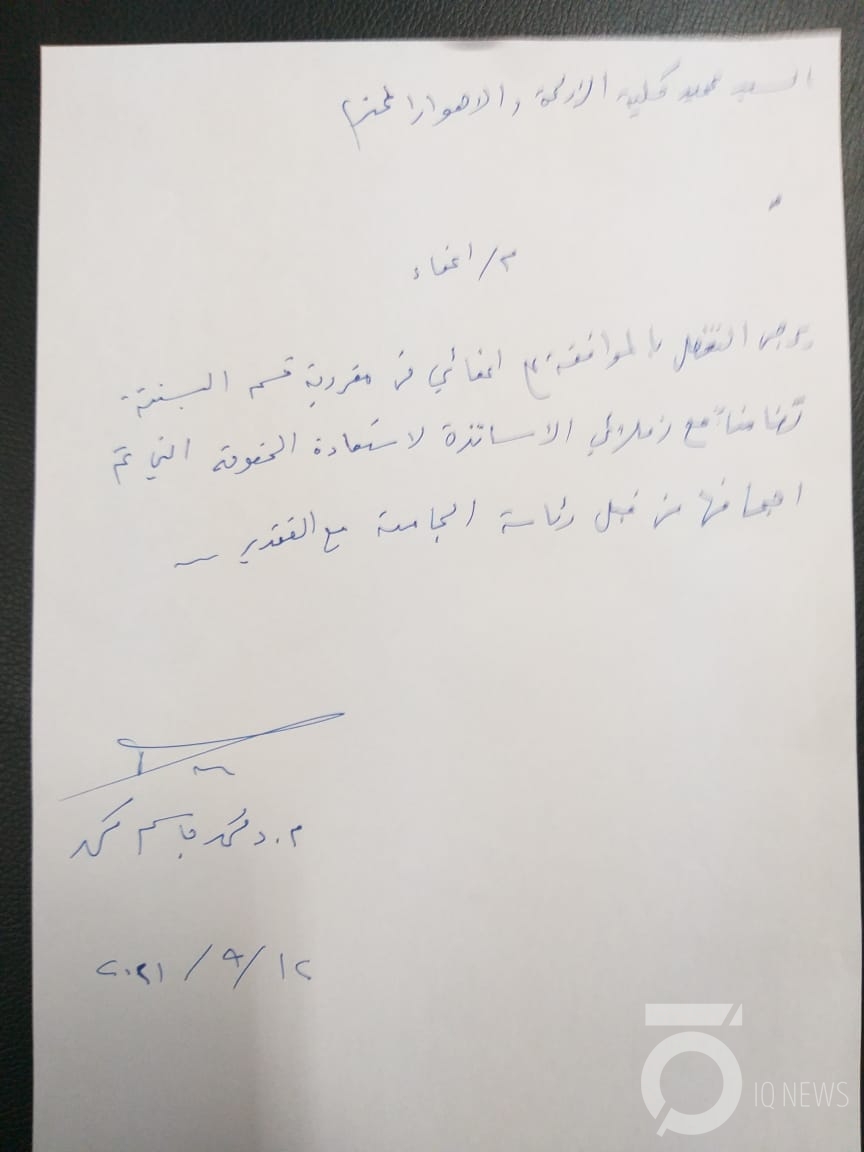 السيد عميد كلية الزراعة والاهوار المحترم
م/ اعفاء
يرجى التفضل بالموافقة على اعفائي من مقررية قسم البستنة
تضامناً مع زملائي الاساتذة لاستعادة الحقوق التي تم
اجحافها من قبل رئاسة الجامعة مع التقدير
م.د محمد جاسم محمد
١٢ / ٩ / ٢٠٢١
IQ NEWS